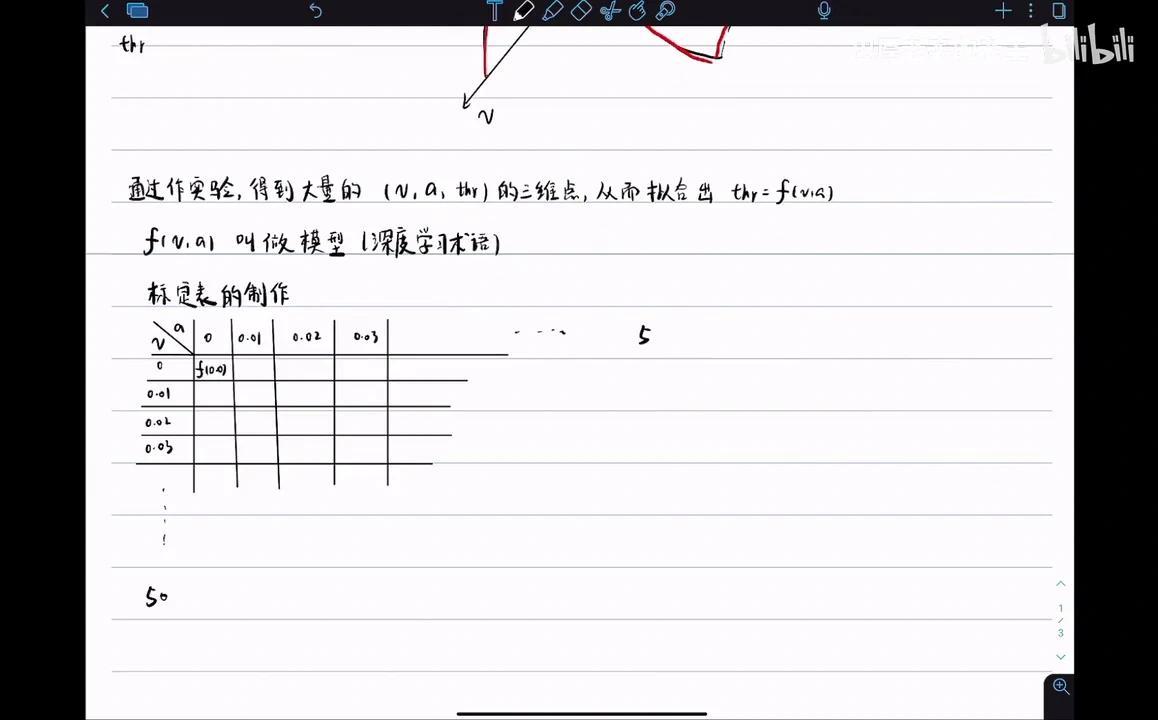 bilibili
thr
v
通过作实验,得到大量的 (v, a, thr) 的三维点,从而拟合出 thr = f(v,a)
f(v,a) 叫做模型 (深度学习术语)
标定表的制作
a 0 0.01 0.02 0.03 ..... 5
v
0 f(0,0)
0.01
0.02
0.03
50
1/3